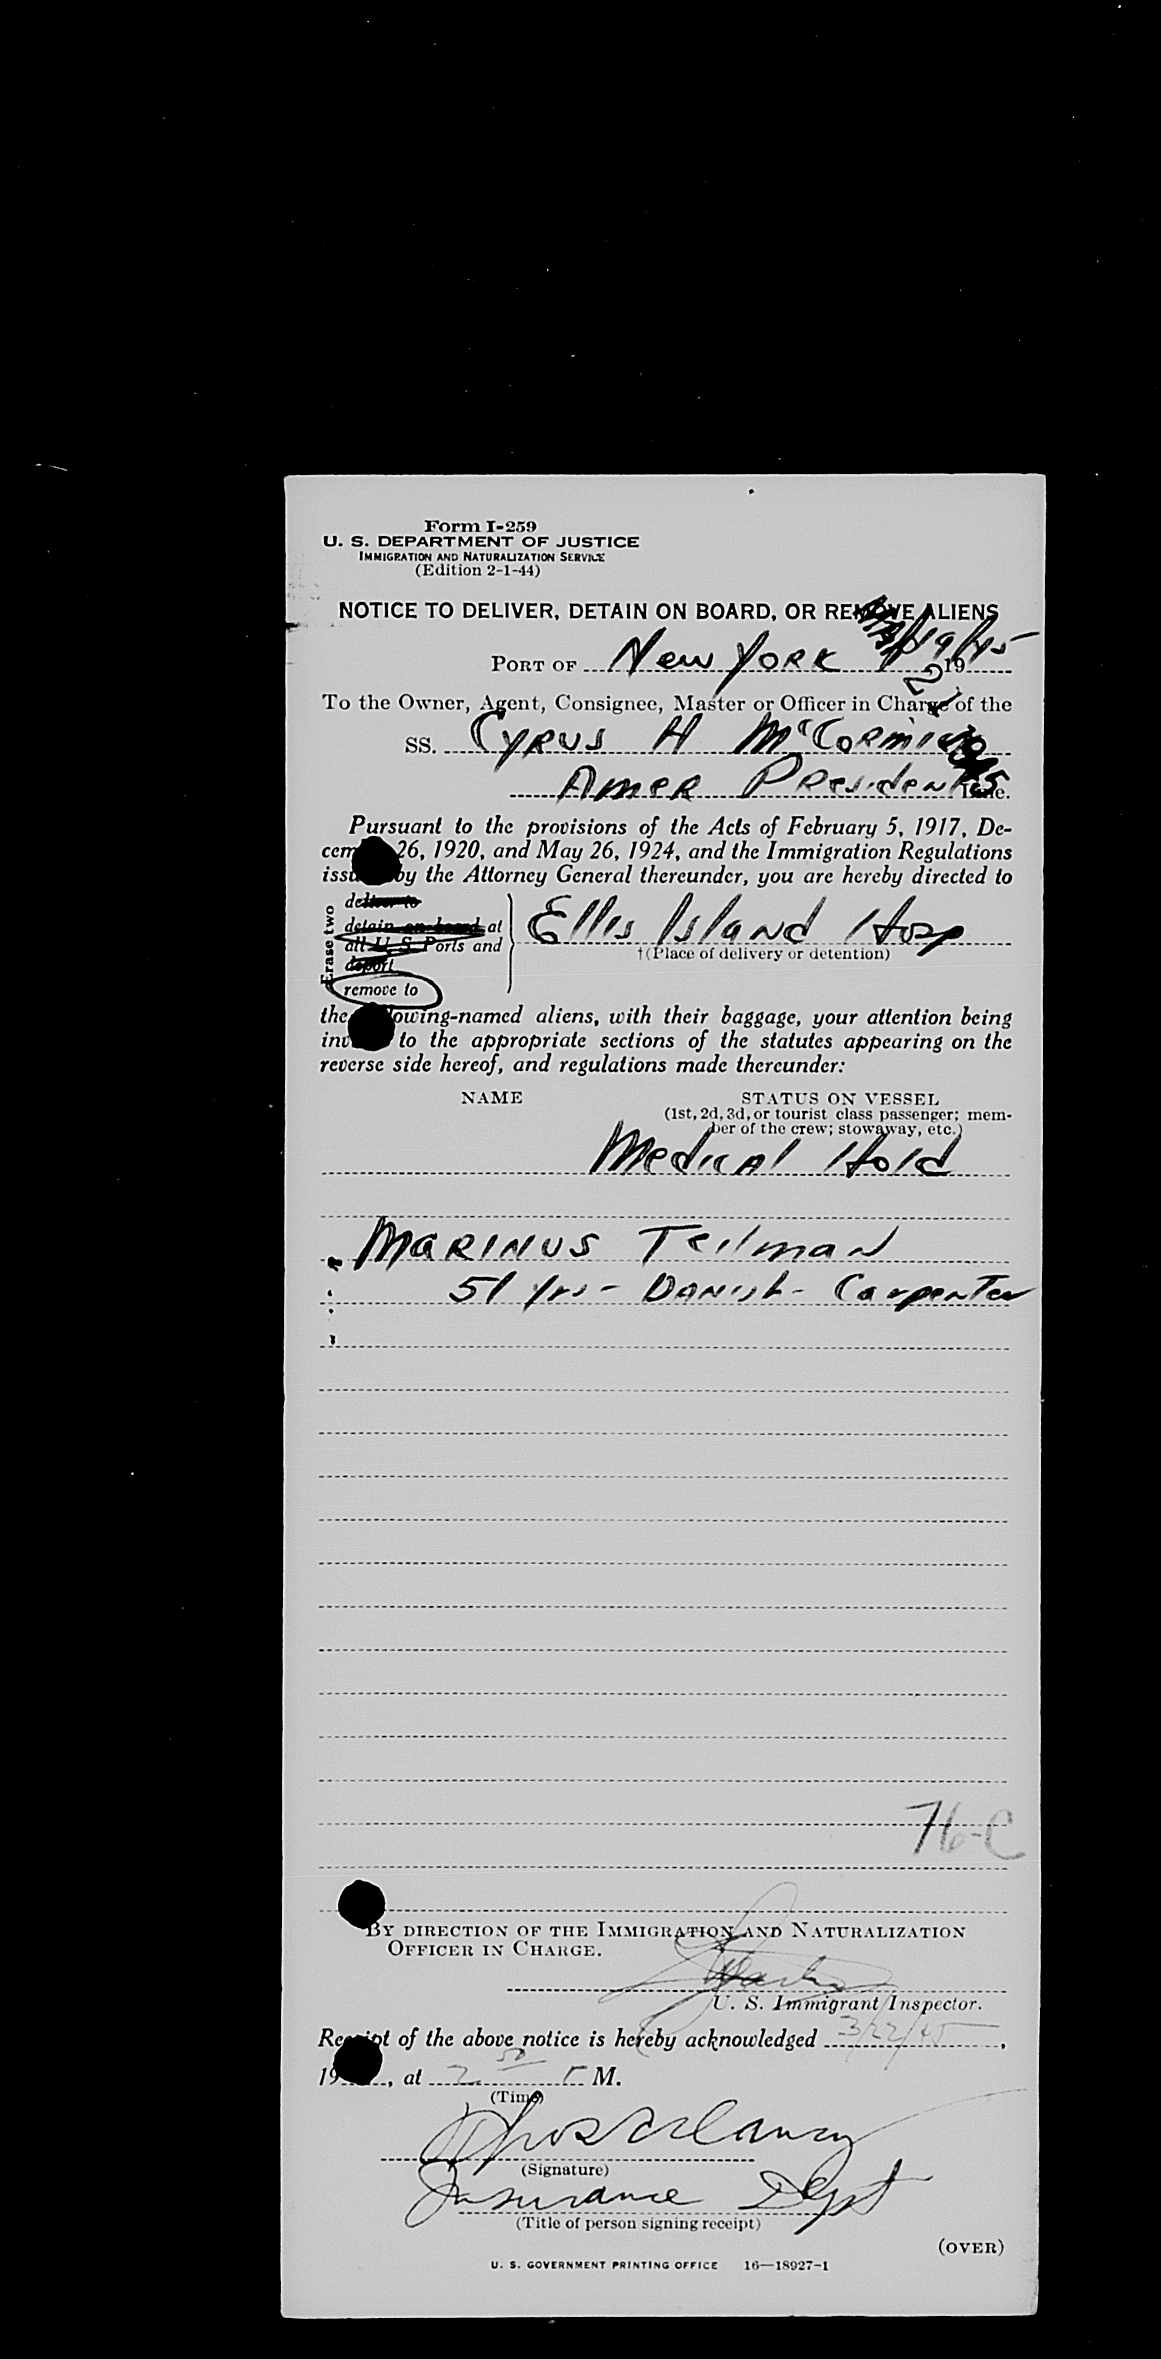 Form I-259
U. S. DEPARTMENT OF JUSTICE
IMMIGRATION AND NATURALIZATION SERVICE
(Edition 2-1-44)
NOTICE TO DELIVER, DETAIN ON BOARD, OR REMOVE ALIENS
PORT OF New York 19/45 19
21
To the Owner, Agent, Consignee, Master or Officer in Charge of the
SS. Cyrus H McCormick
Amer President Line.
Pursuant to the provisions of the Acts of February 5, 1917, De-
cem 26, 1920, and May 26, 1924, and the Immigration Regulations
issu by the Attorney General thereunder, you are hereby directed to
Erase two
deliver to
detain on board at
all U S Ports and
deport
remove to
Ellis Island Hosp
†(Place of delivery or detention)
the owing-named aliens, with their baggage, your attention being
inv to the appropriate sections of the statutes appearing on the
reverse side hereof, and regulations made thereunder:
NAME STATUS ON VESSEL
(1st, 2d, 3d, or tourist class passenger; mem-
ber of the crew; stowaway, etc.)
Medical Hold
Marinus Teilman
51 yrs - Danish - Carpenter
76-C
BY DIRECTION OF THE IMMIGRATION AND NATURALIZATION
OFFICER IN CHARGE.
U. S. Immigrant Inspector.
Receipt of the above notice is hereby acknowledged 3/22/45,
19, at 2 50 P M.
(Time)
(Signature)
Insurance Dept
(Title of person signing receipt)
(OVER)
U. S. GOVERNMENT PRINTING OFFICE 16—18927-1